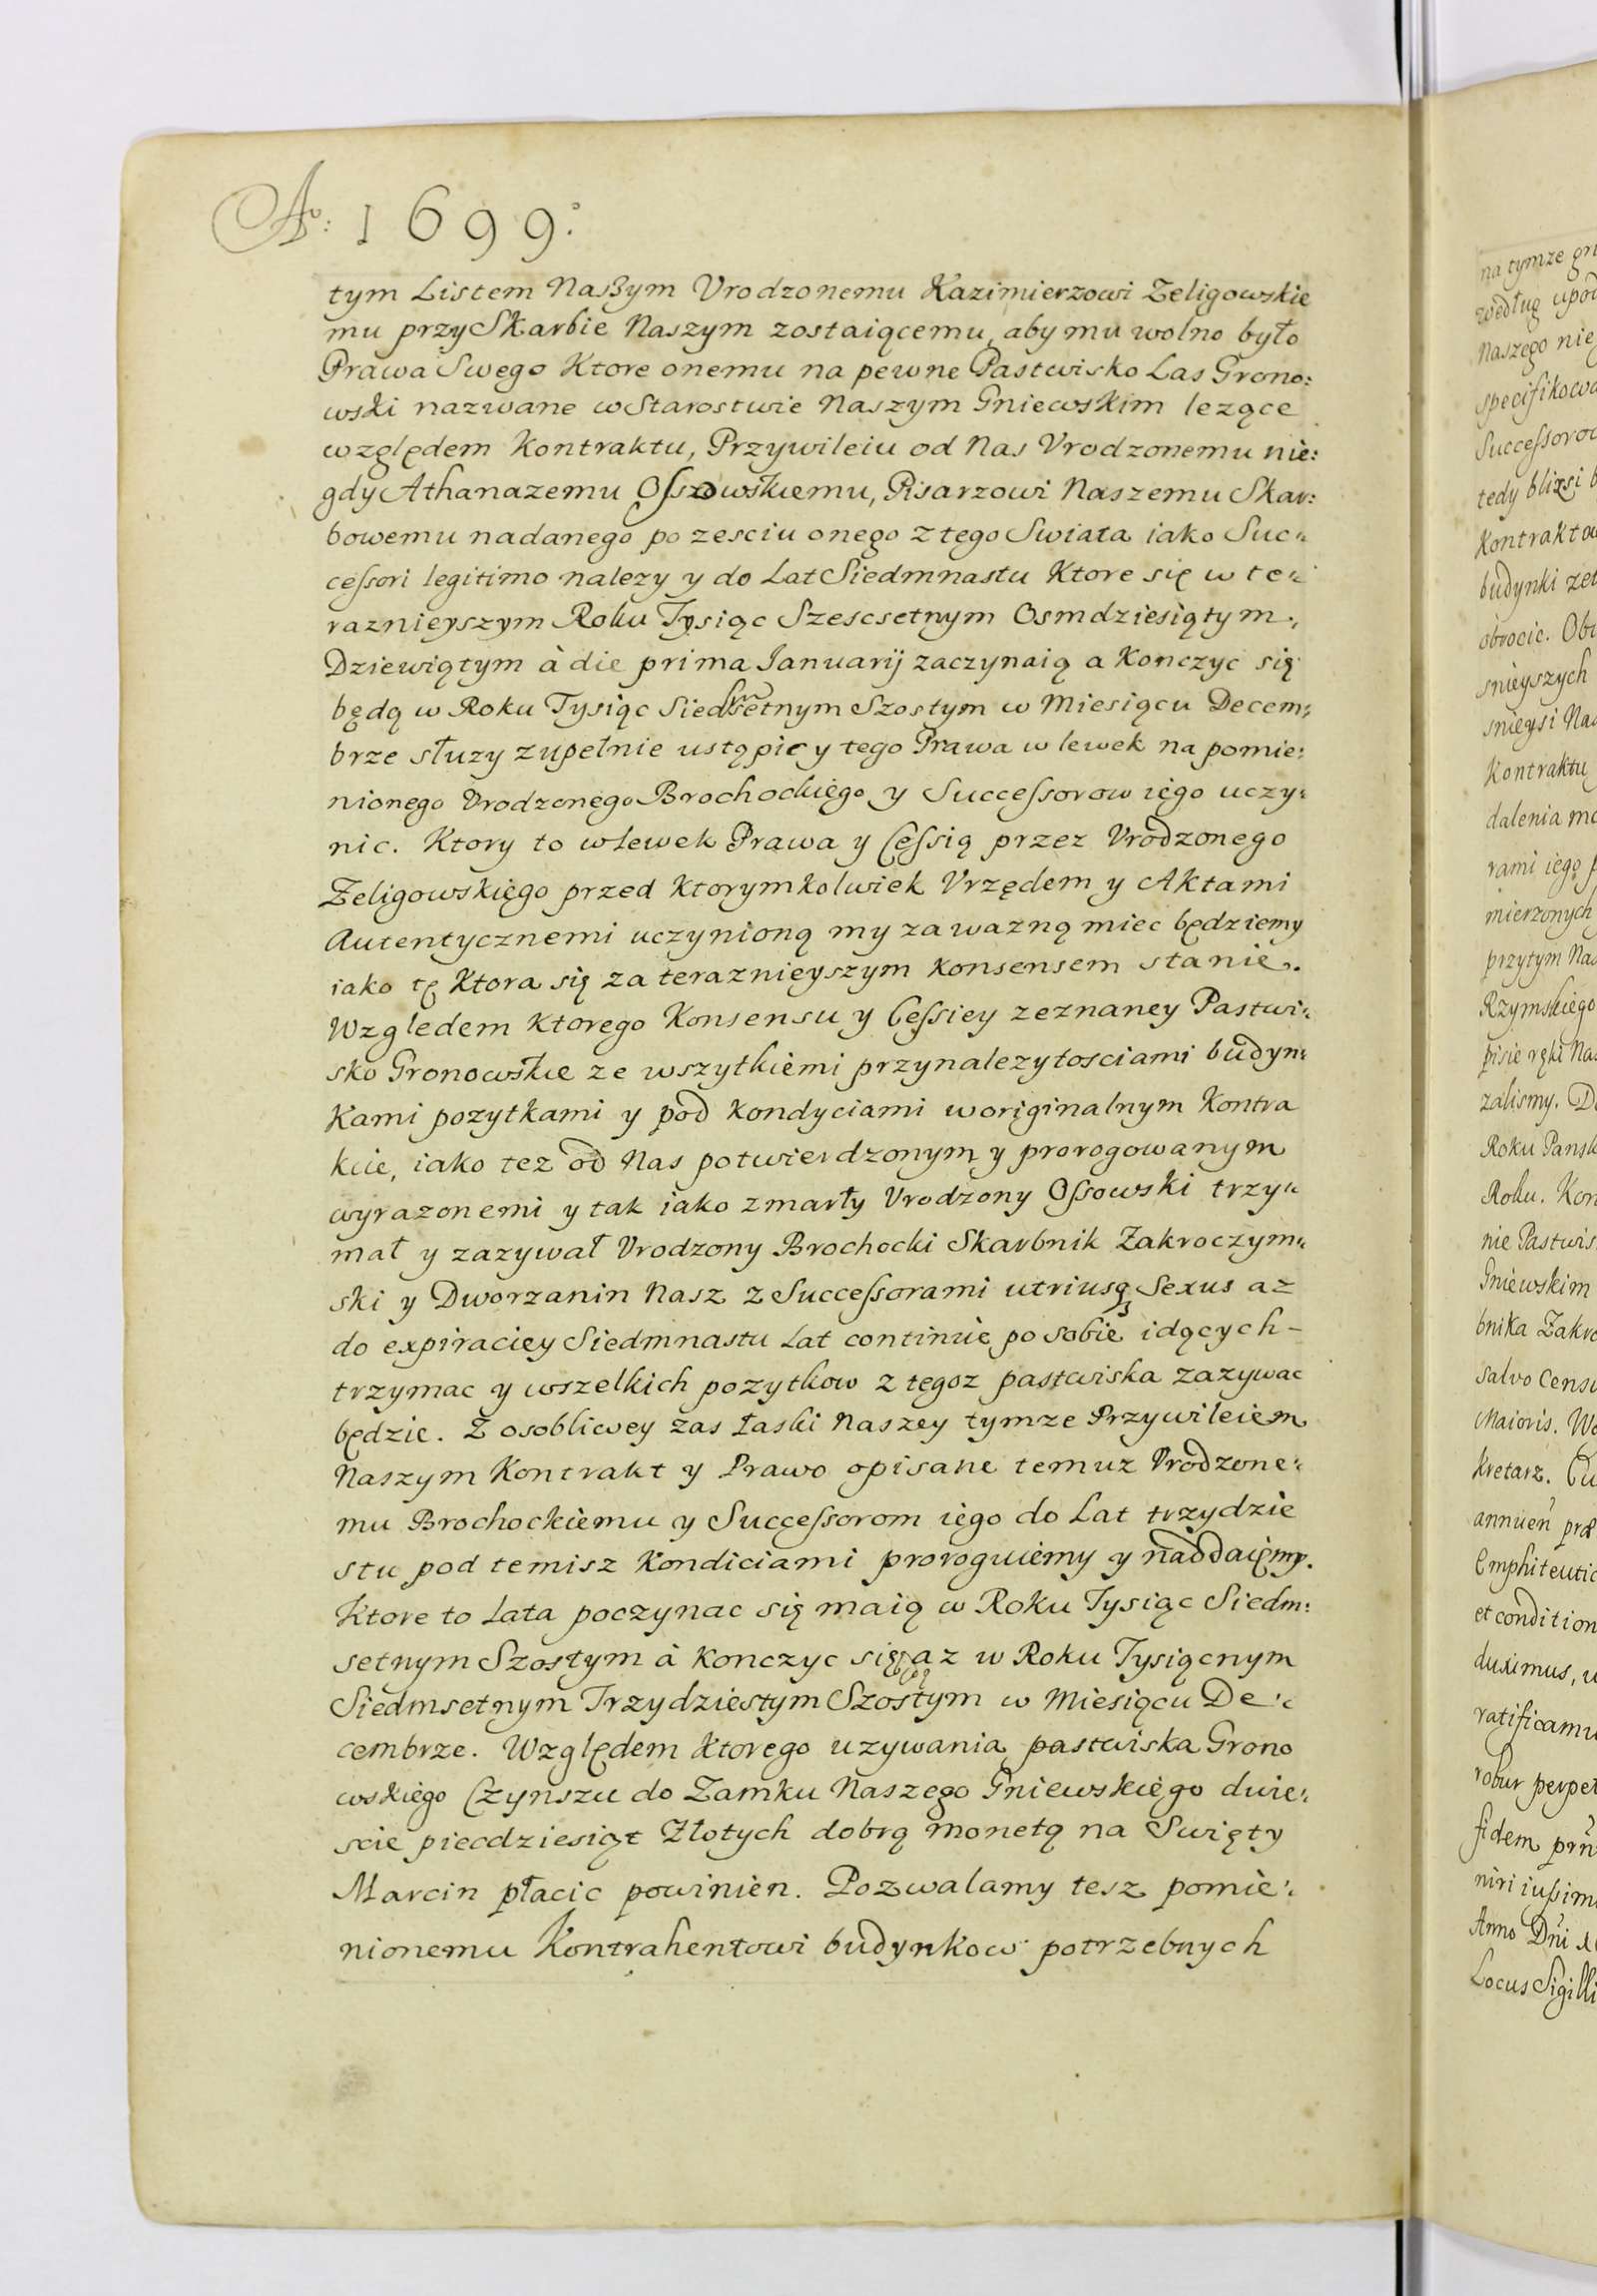 Aº: 1699:
tym Listem Naszym Vrodzonemu Kazimierzowi Zeligowskie
mu przy Skarbie Naszym zostaiącemu, aby mu wolno było
Prawa Swego Ktore onemu na pewne Pastwisko Las Grono:
wski nazwane w Starostwie Naszym Gniewskim lezące
względem Kontraktu, Przywileiu od Nas Vrodzonemu nie:
gdy Athanazemu Ossowskiemu, Pisarzowi Naszemu Skar:
bowemu nadanego po zesciu onego z tego Swiata iako Suc:
cessori legitimo nalezy y do Lat Siedmnastu Ktore się w te:
raznieyszym Roku Tysiąc Szescsetnym Osmdziesiątym:
Dziewiątym à die prima Ianuarij zaczynaią a Konczyc się
będą w Roku Tysiąc Siedmsetnym Szostym w Miesiącu Decem:
brze słuzy zupełnie ustąpic y tego Prawa wlewek na pomie:
nionego Vrodzonego Brochockiego y Successorow iego uczy:
nic. Ktory to wlewek Prawa y Cessią przez Vrodzonego
Zeligowskiego przed Ktorymkolwiek Vrzędem y Aktami
Autentycznemi uczynioną my za wazną miec będziemy
iako tę Ktora się za teraznieyszym Konsensem stanie.
Wzgledem Ktorego Konsensu y Cessiey zeznaney Pastwi:
sko Gronowskie ze wszytkiemi przynalezytosciami budyn:
Kami pozytkami y pod Kondyciami w originalnym Kontra
kcie, iako tez od Nas potwierdzonym y prorogowanym
wyrazonemi y tak iako zmarły Vrodzony Ossowski trzy:
mał y zazywał Vrodzony Brochocki Skarbnik Zakroczym:
ski y Dworzanin Nasz z Successorami utriusq3 Sexus az
do expiraciey Siedmnastu Lat continuie po sobie idących -
trzymac y wszelkich pozytkow z tegoz pastwiska zazywac
będzie. Z osobliwey zas Łaski Naszey tymze Przywileiem
Naszym Kontrakt y Prawo opisane temuz Vrodzone:
mu Brochockiemu y Successorom iego do Lat trzydzie
stu pod temisz Kondiciami proroguiemy y naddaiemy.
Ktore to Lata poczynac się maią w Roku Tysiąc Siedm:
setnym Szostym à Konczyc się będą az w Roku Tysiącnym
Siedmsetnym Trzydziestym Szostym w Miesiącu De:
cembrze. Względem Ktorego uzywania pastwiska Grono
wskiego Czynszu do Zamku Naszego Gniewskiego dwie:
scie piecdziesiąt Złotych dobrą monetą na Swięty
Marcin płacic powinien. Pozwalamy tesz pomie:
nionemu Kontrahentowi budynkow potrzebnych
na tymze
według
Naszego
tedy blizsi
budynki
obrocic.
snieyszych
Kontraktu
dalenia
rami iego
mierzonych
przytym
Rzymskiego
pisie ręki
zalismy.
Roku
Roku.
nie
Gniewskim
bnika
salvo
Maioris.
kretarz.
et
duximus,
robur
fidem
niri
Anno Dni
Locus Sigilli